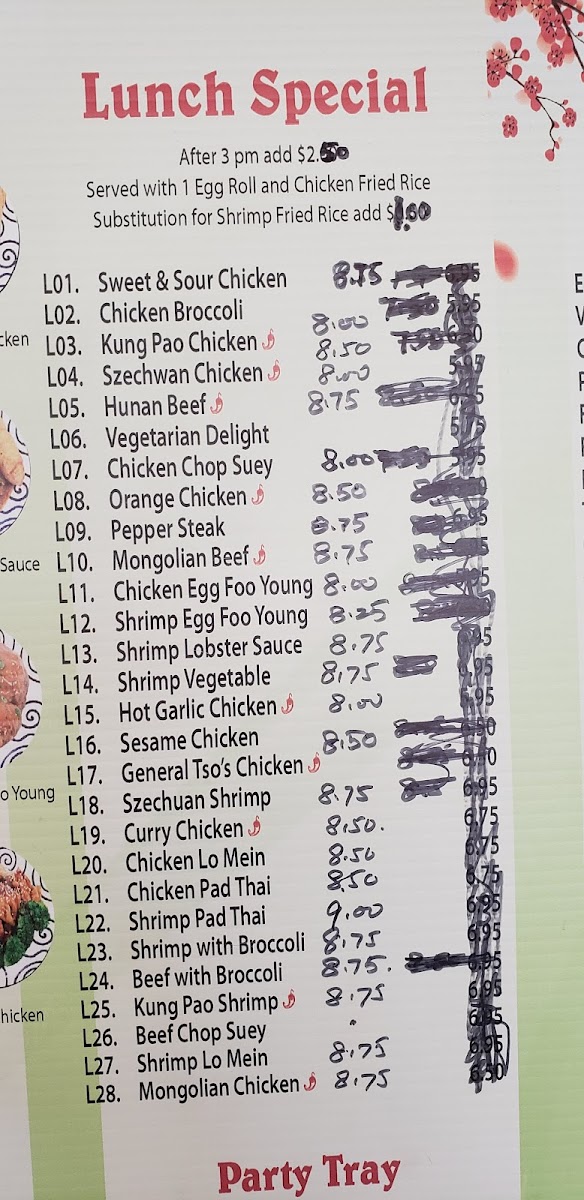 Lunch Special
After 3 pm add $2.50
Served with 1 Egg Roll and Chicken Fried Rice
Substitution for Shrimp Fried Rice add $1.00
L01. Sweet & Sour Chicken 8.75
L02. Chicken Broccoli 8.00
L03. Kung Pao Chicken 8.50
L04. Szechwan Chicken 8.00
L05. Hunan Beef 8.75
L06. Vegetarian Delight
L07. Chicken Chop Suey 8.00
L08. Orange Chicken 8.50
L09. Pepper Steak 8.75
L10. Mongolian Beef 8.75
L11. Chicken Egg Foo Young 8.00
L12. Shrimp Egg Foo Young 8.25
L13. Shrimp Lobster Sauce 8.75
L14. Shrimp Vegetable 8.75
L15. Hot Garlic Chicken 8.00
L16. Sesame Chicken 8.50
L17. General Tso's Chicken
L18. Szechuan Shrimp 8.75
L19. Curry Chicken 8.50.
L20. Chicken Lo Mein 8.50
L21. Chicken Pad Thai 8.50
L22. Shrimp Pad Thai 9.00
L23. Shrimp with Broccoli 8.75
L24. Beef with Broccoli 8.75.
L25. Kung Pao Shrimp 8.75
L26. Beef Chop Suey
L27. Shrimp Lo Mein 8.75
L28. Mongolian Chicken 8.75
Party Tray
cken
Sauce
o Young
hicken